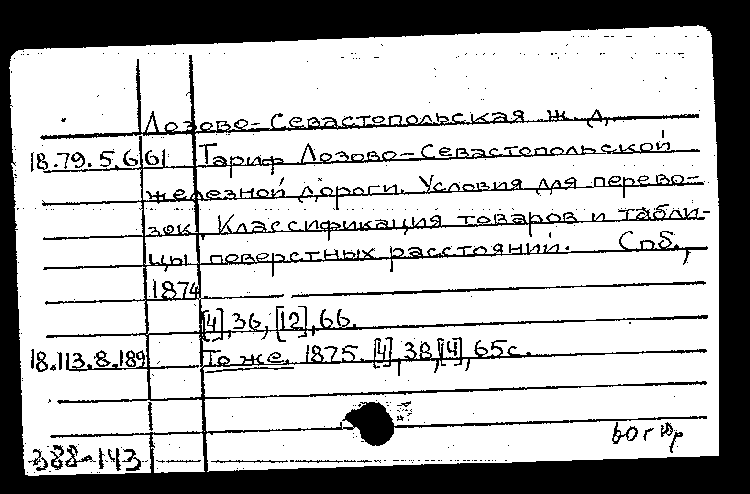 Лозово-Севастопольская ж. д.
18.79.5.6 61 Тариф Лозово-Севастопольской
железной дороги. Условия для перево-
зок. Классификация товаров и табли-
цы поверстных расстояний. Спб.,
1874
[4], 36, [12], 66.
18.113.8.189 То же. 1875. [4], 38, [4], 65 с.
388-143